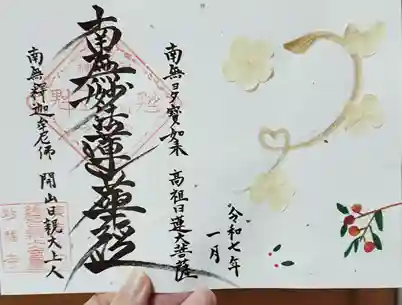 令和七年
一月
南無多寳如来 高祖日蓮大菩薩
南無妙法蓮華経
南無釋迦牟尼佛 開山日親大上人